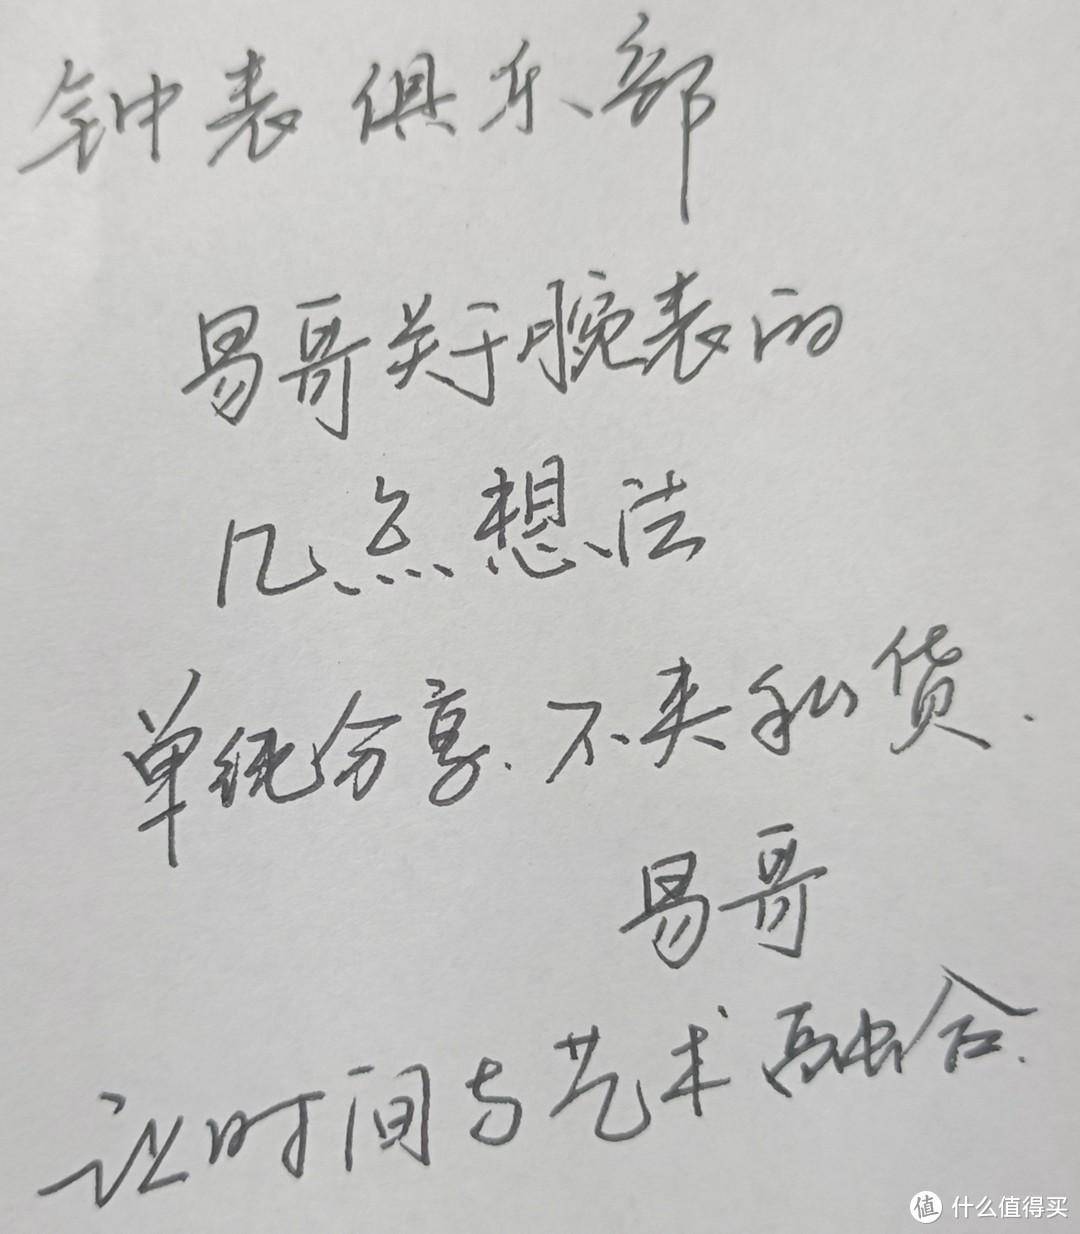 钟表俱乐部
易哥关于腕表的
几点想法
单纯分享.不夹私货.
易哥
让时间与艺术融合.
值 什么值得买